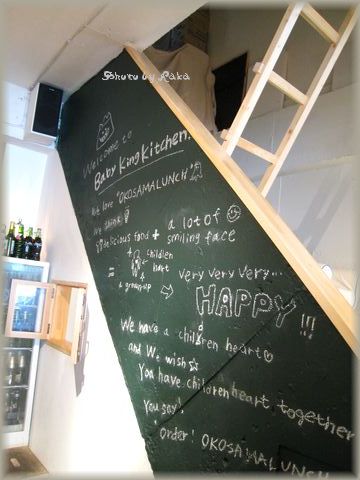 Photo by Kaka
Welcome to
Baby King Kitchen!
We love "OKOSAMALUNCH"
We think
delicious food + a lot of
smiling face
+ children
= hart
a grown-up
very very very...
⇨ HAPPY!!!
We have a children heart♡
and We wish☆
You have children heart together
You say!,
Order! OKOSAMALUNCH